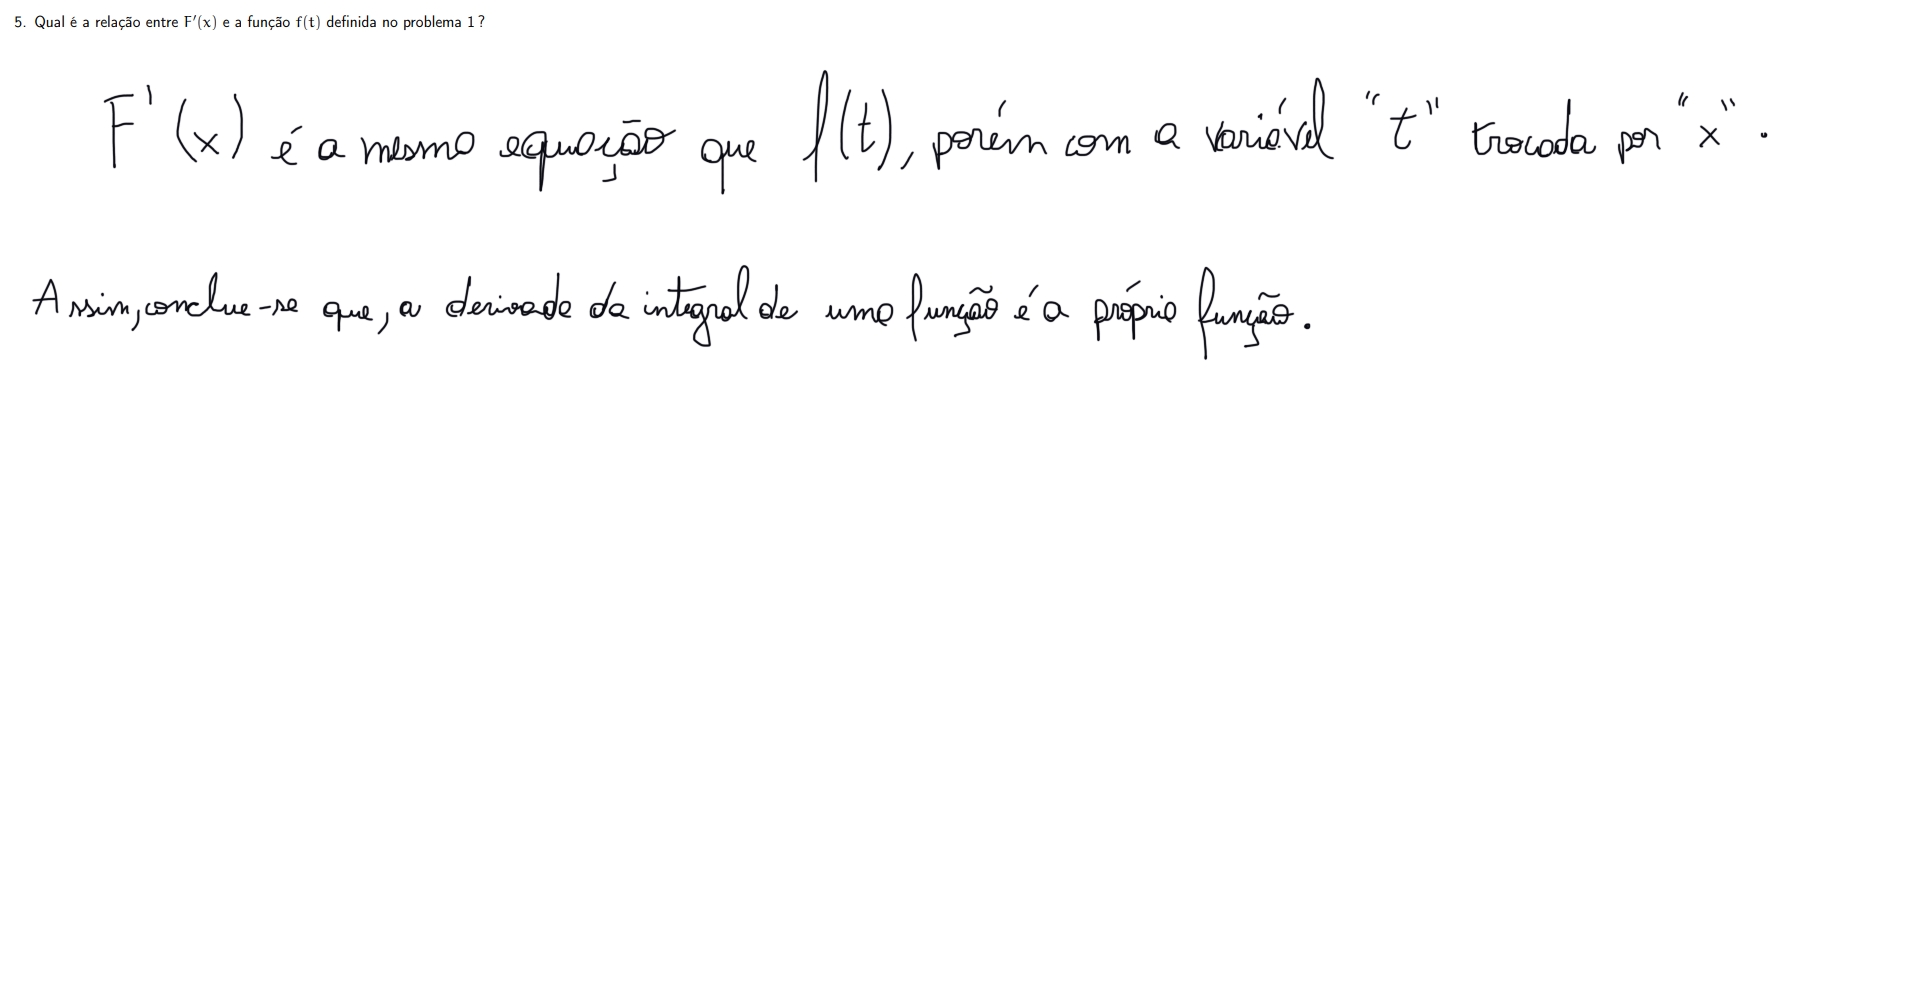 5. Qual é a relação entre F′(x) e a função f(t) definida no problema 1?
F'(x) é a mesma equação que f(t), porém com a variável "t" trocada por "x".
Assim, conclue-se que, a derivada da integral de uma função é a própria função.